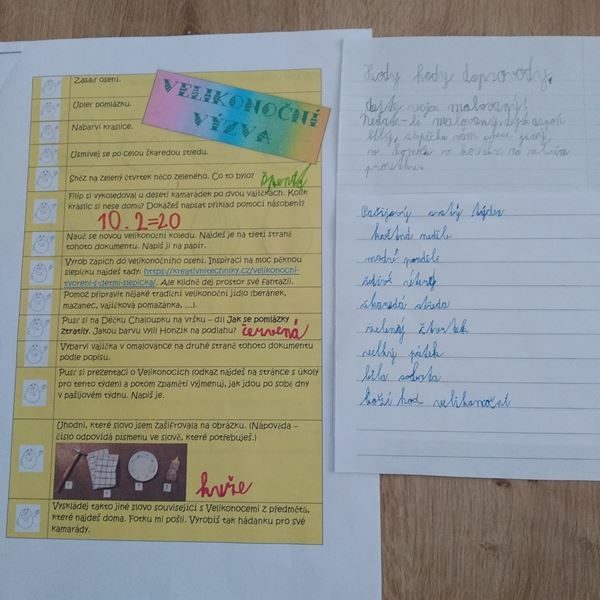 VELIKONOČNÍ
VÝZVA
Zasaď osení.
Upleť pomlázku.
Nabarvi kraslice.
Usmívej se po celou škaredou středu.
Sněz na zelený čtvrtek něco zeleného. Co to bylo? špenát
Filip si vykoledoval u deseti kamarádek po dvou vajíčkách. Kolik
kraslic si nese domů? Dokážeš napsat příklad pomocí násobení?
10.2=20
Nauč se novou velikonoční koledu. Najdeš je na třetí straně
tohoto dokumentu. Napiš ji na papír.
Vyrob zápich do velikonočního osení. Inspiraci na moc pěknou
slepičku najdeš tady: https://kreativnitechniky.cz/velikonocni-
tvoreni-s-detmi-slepicka/. Ale klidně dej prostor své fantazii.
Pomoz připravit nějaké tradiční velikonoční jídlo (beránek,
mazanec, vajíčková pomazánka, ...).
Pusť si na Déčku Chaloupku na vršku – díl Jak se pomlázky
ztratily. Jakou barvu vylil Honzík na podlahu? červená
Vybarvi vajíčka v omalovánce na druhé straně tohoto dokumentu
podle popisu.
Pusť si prezentaci o Velikonocích (odkaz najdeš na stránce s úkoly
pro tento týden) a potom zpaměti vyjmenuj, jak jdou po sobě dny
v pašijovém týdnu. Napiš je.
Uhodni, které slovo jsem zašifrovala na obrázku. (Nápověda –
číslo odpovídá písmenu ve slově, které potřebuješ.)
kuře
Vyskládej takto jiné slovo související s Velikonocemi z předmětů,
které najdeš doma. Fotku mi pošli. Vyrobíš tak hádanku pro své
kamarády.
Hody hody doprovody,
dejte vejce malovaný!
Nedáte-li malovaný, dejte aspoň
bílý, slepička vám snese jiný,
Pašijový svatý týden
květná neděle
modré pondělí
žluté úterý
škaredá středa
zelený čtvrtek
velký pátek
bílá sobota
boží hod velikonoční